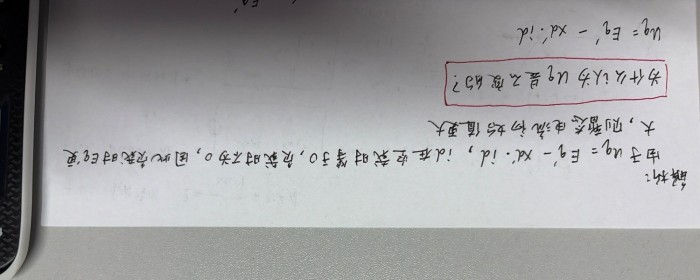 解析:
由于 Uq = Eq' - xd'·id , id 在空载时等于0, 负载时不为0, 因此负载时Eq'更
大, 则暂态电流初始值更大
为什么认为 Uq 是不变的?
Uq = Eq' - xd'·id